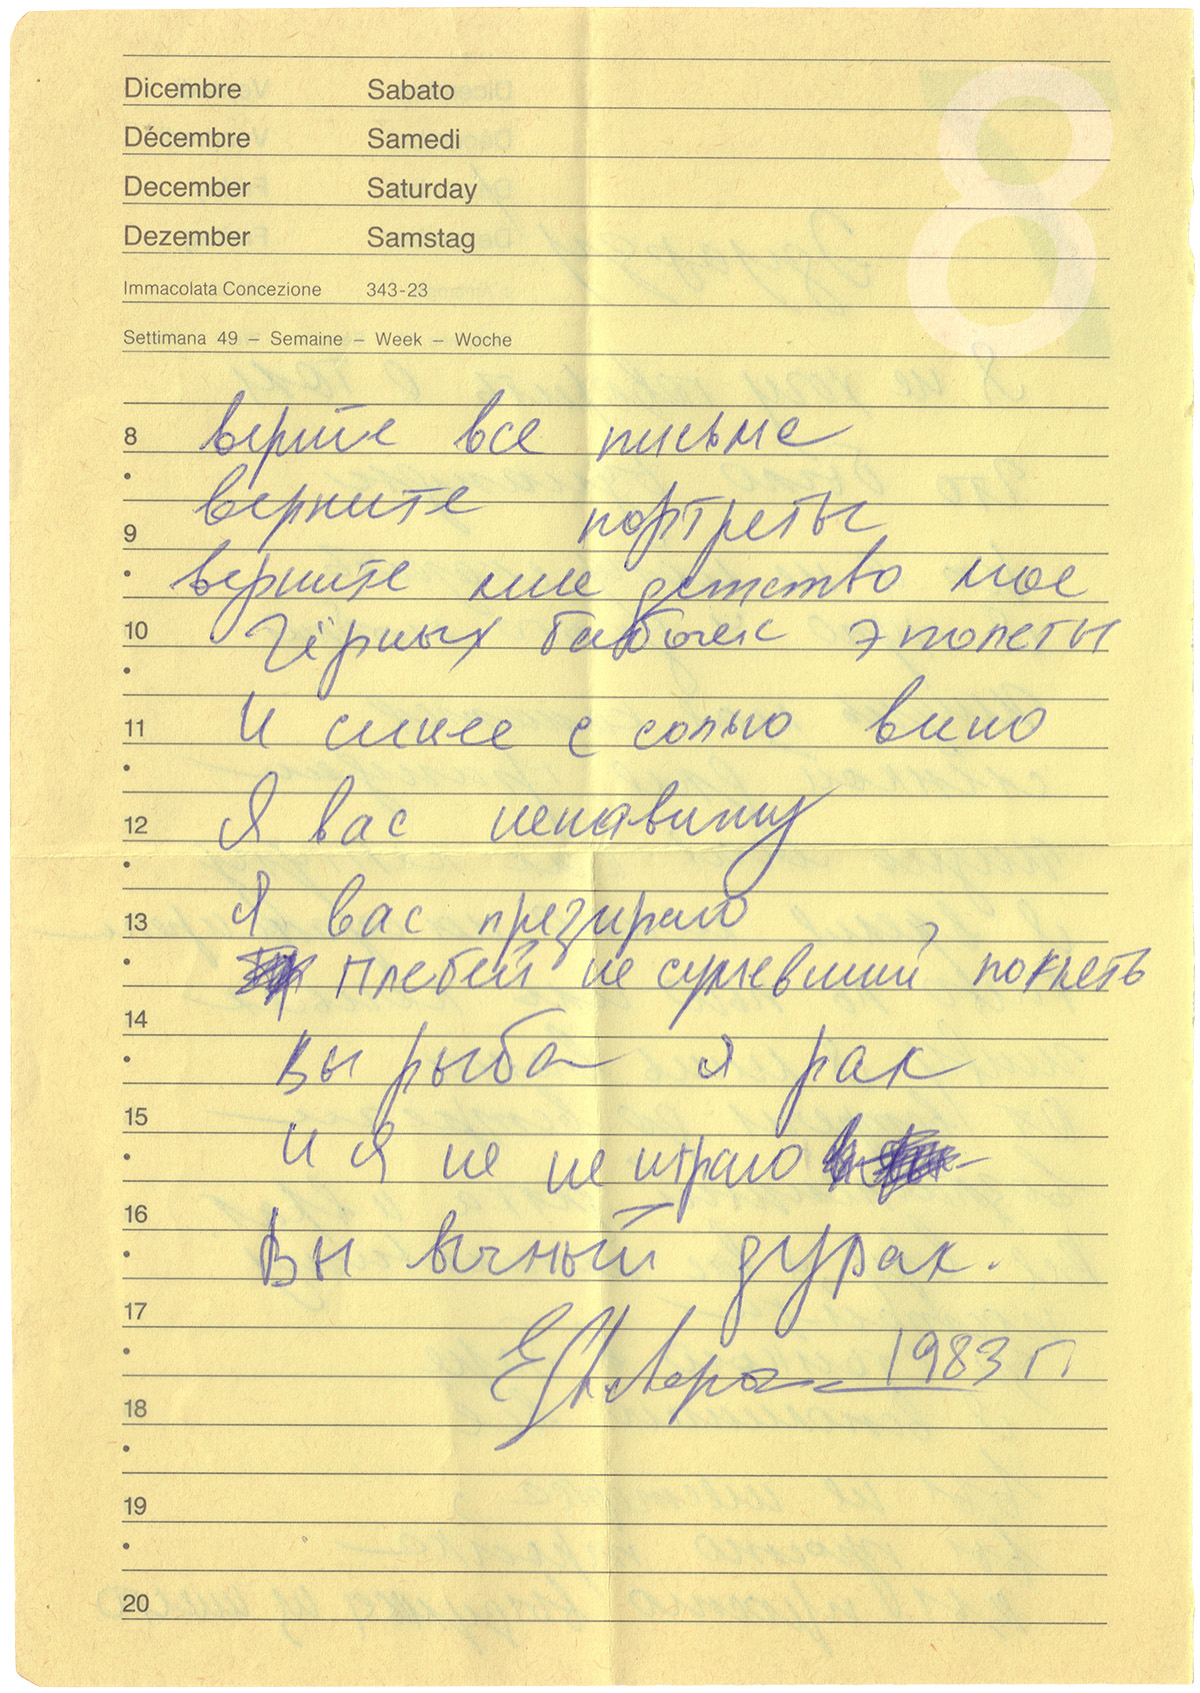 Dicembre Sabato
Décembre Samedi
December Saturday
Dezember Samstag
8
Immacolata Concezione 343-23
Settimana 49 – Semaine – Week – Woche
8 верите все письма
верните портреты
9
верните мне детство мое
10 Чёрных бабочек эполеты
11 И синее с солью вино
12 Я вас ненавижу
13 Я вас презираю
Плебей не сумевший понять
14
Вы рыба я рак
15
И я не не играю
16
Вы вычный дурак.
17
1983 г
18
19
20